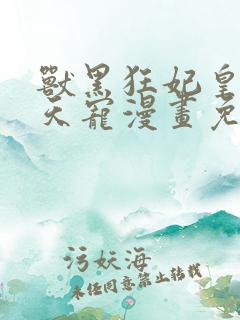 獸黑狂妃皇
天寵漫畫免
污妖海
未经同意禁止转载